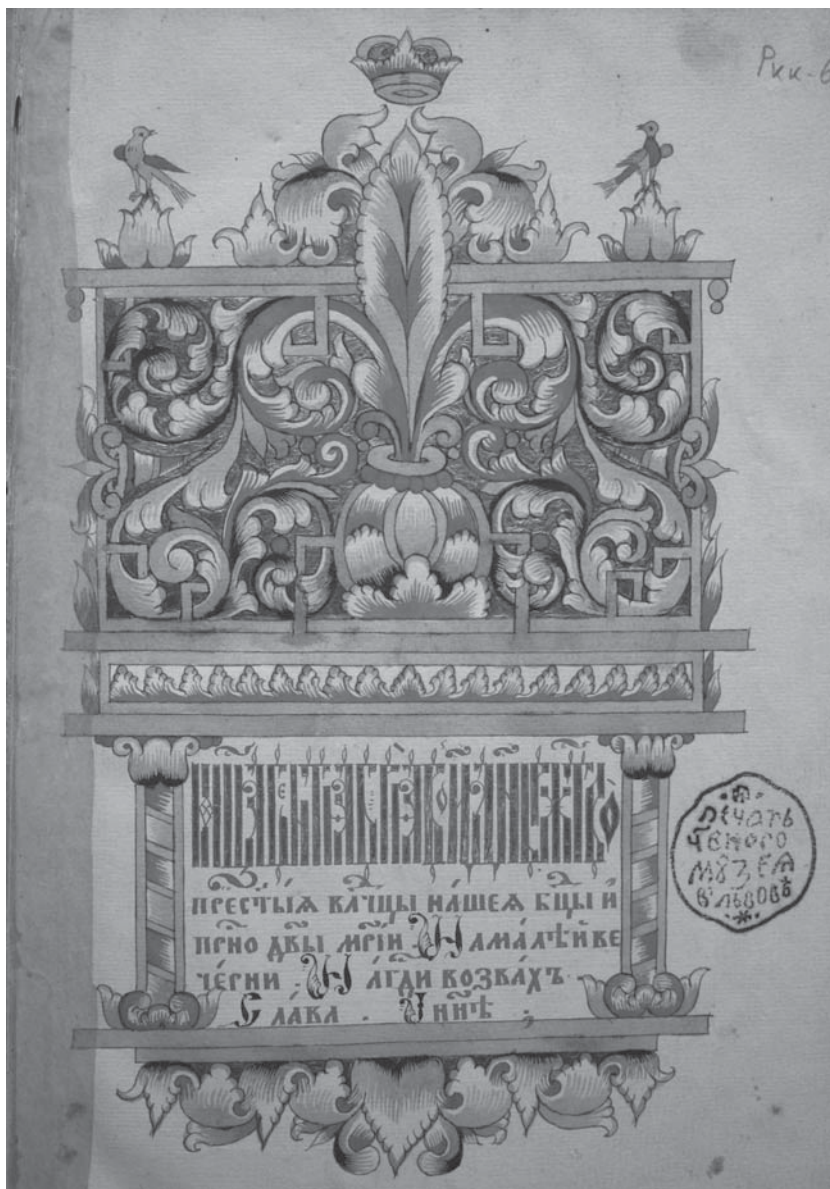 Ркк-
прест҃ы́ѧ влч҃цы на́шеѧ бц҃ы и҆
прⷭ҇но дв҃ы мр҃і́и На ма́лѣй ве
че́рни На гдⷭ҇и возва́хъ
Сла́ва . И ни҃ѣ ;
Печать
музеѧ
в̾ Львовѣ